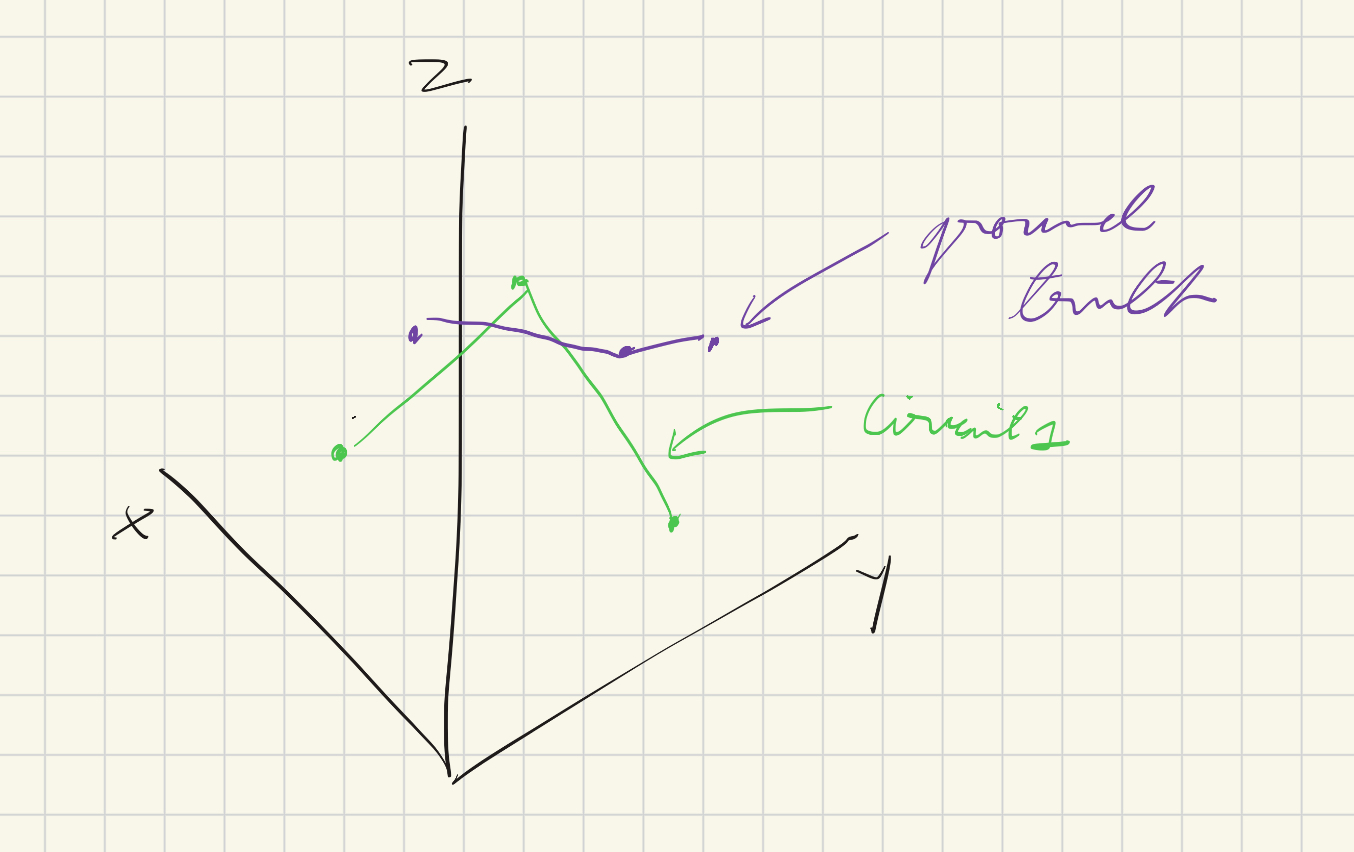 Z
ground
truth
Circuit 1
X
Y